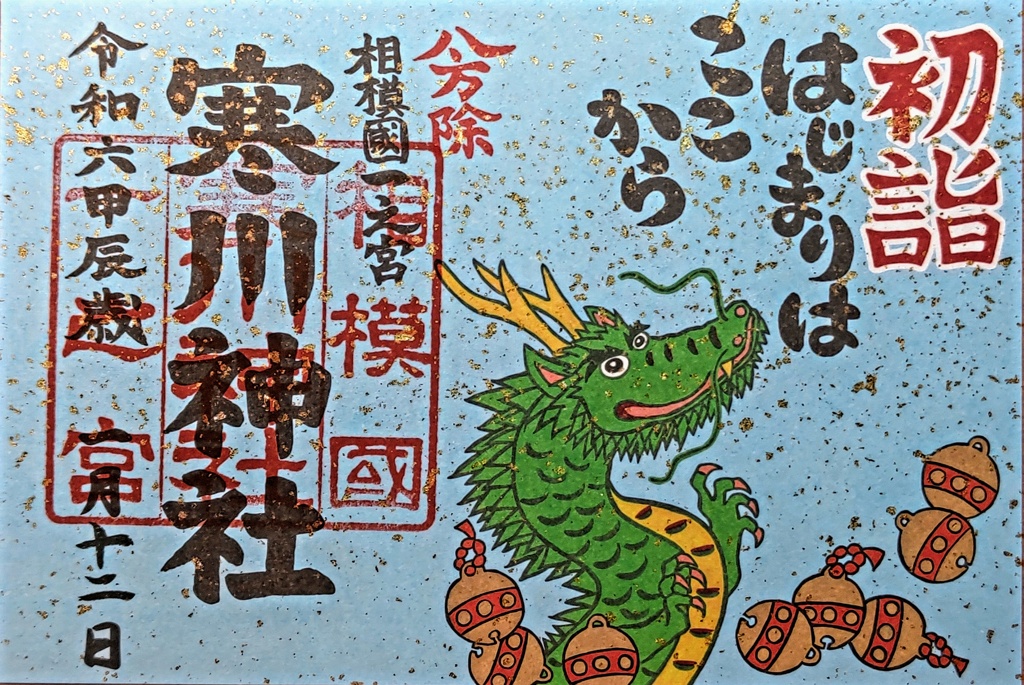 初詣
はじまりは
ここ
から
八方除
相模國一之宮
寒川神社
令和六甲辰歳一月十二日
相模國
寒川神社
一之宮